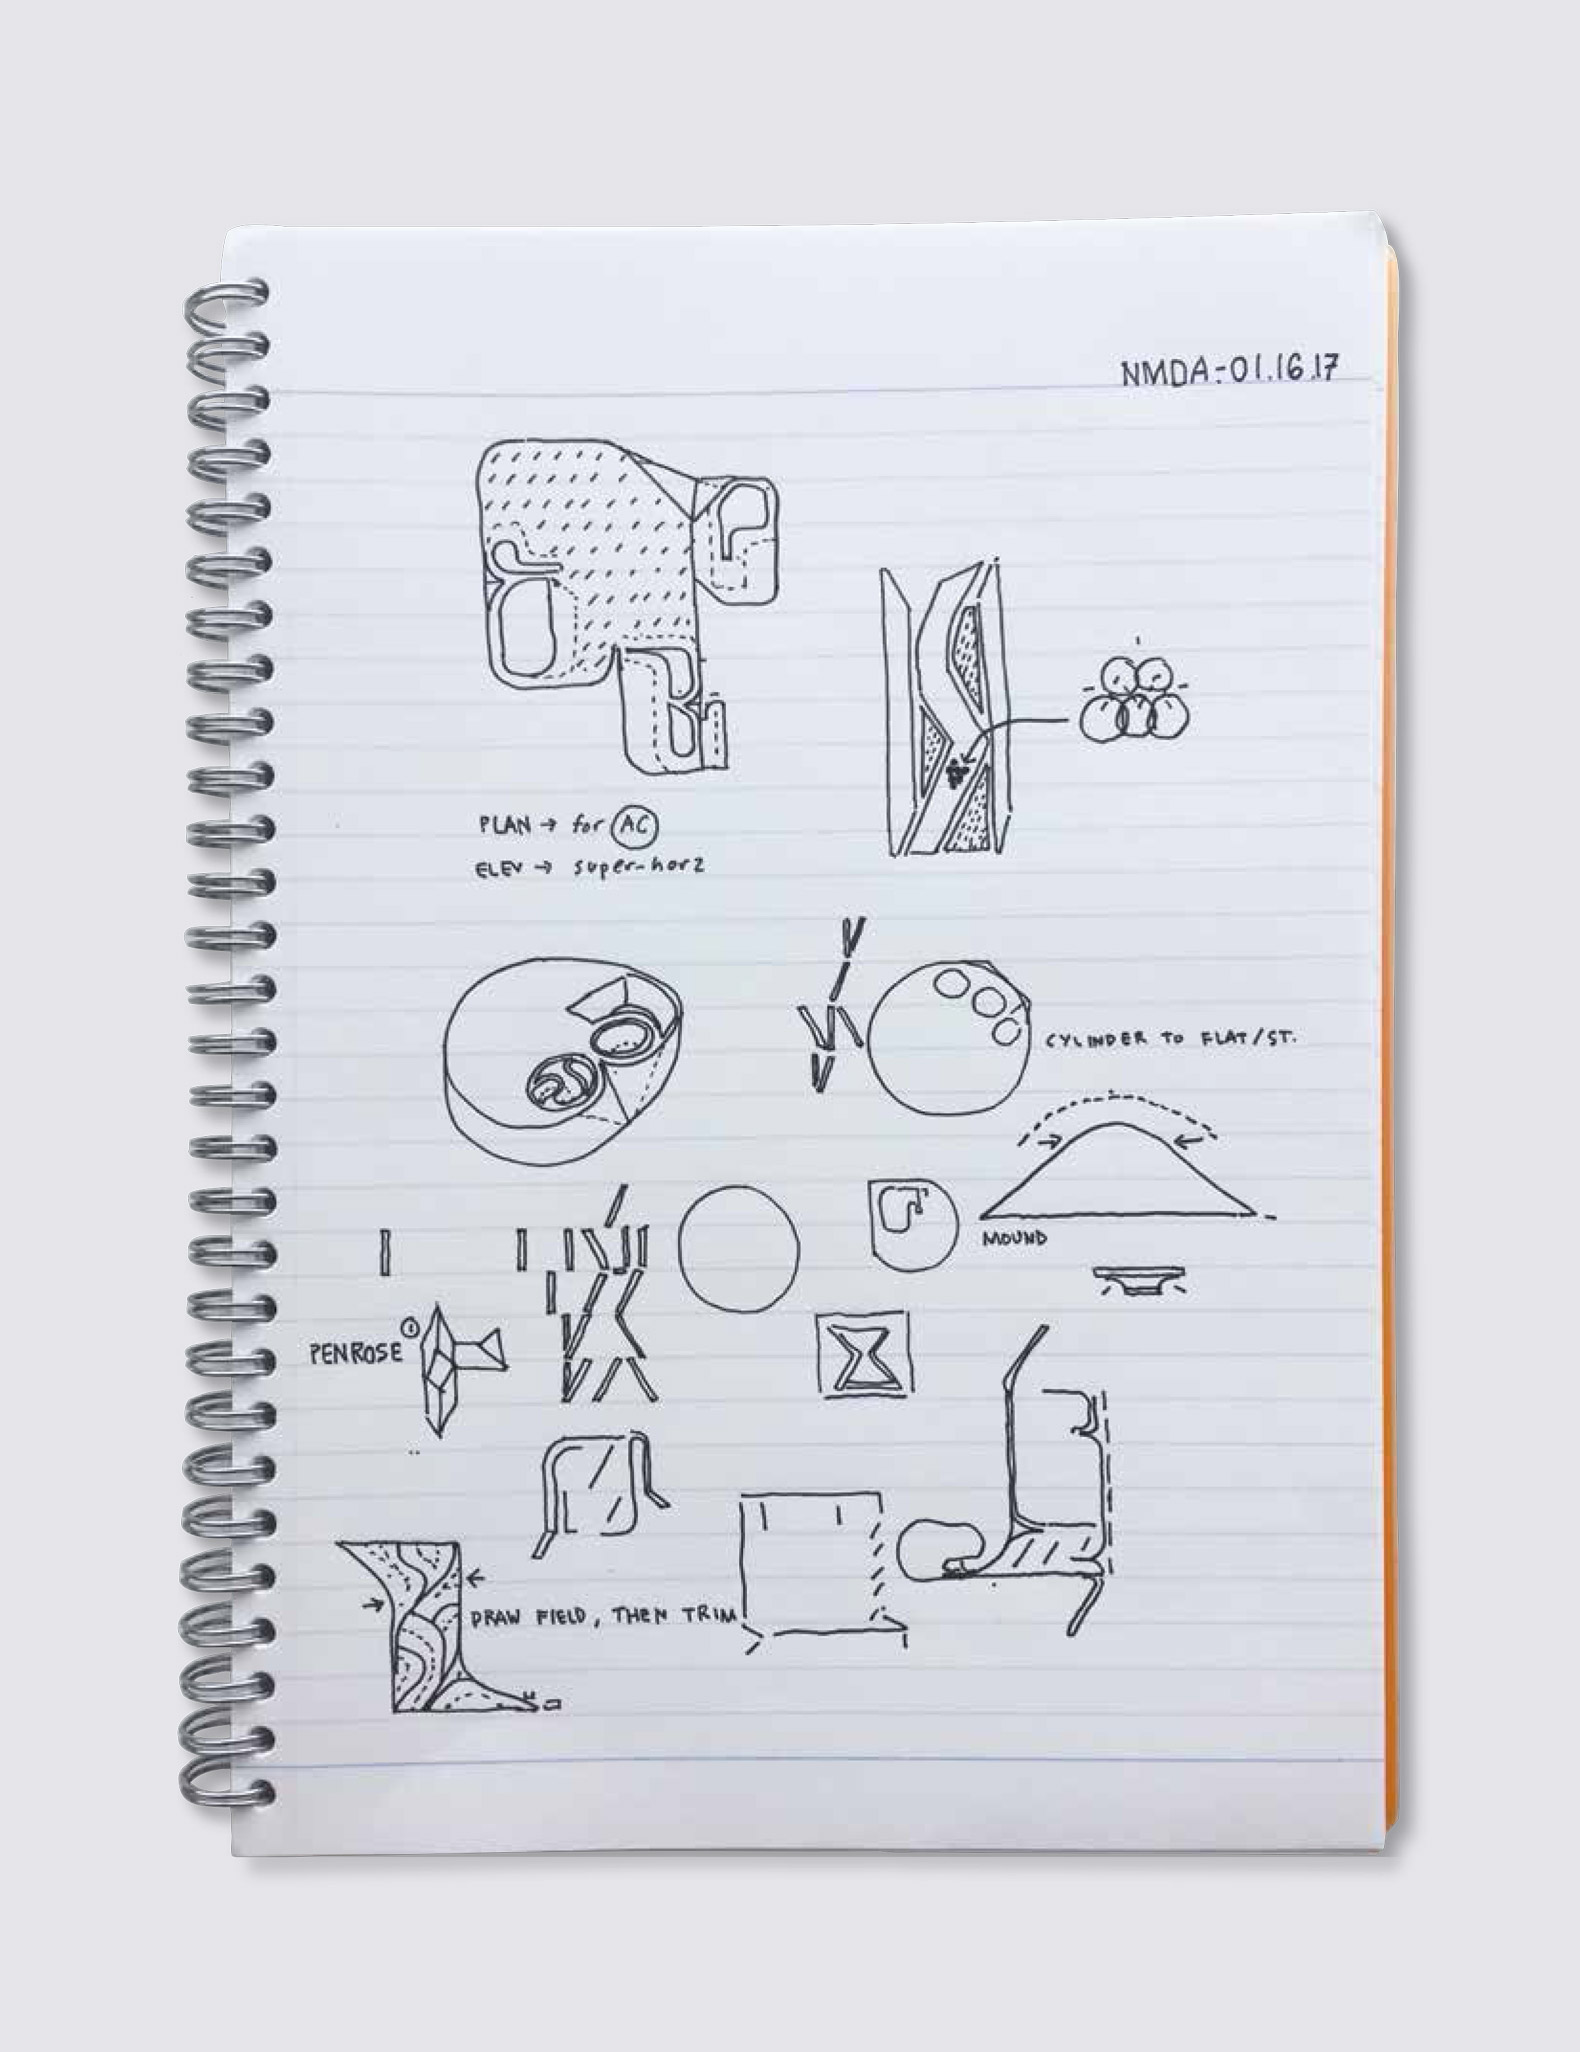 NMDA-01.16.17
PLAN → for AC
ELEV → super-horz
CYLINDER TO FLAT/ST.
MOUND
PENROSE 1
DRAW FIELD, THEN TRIM